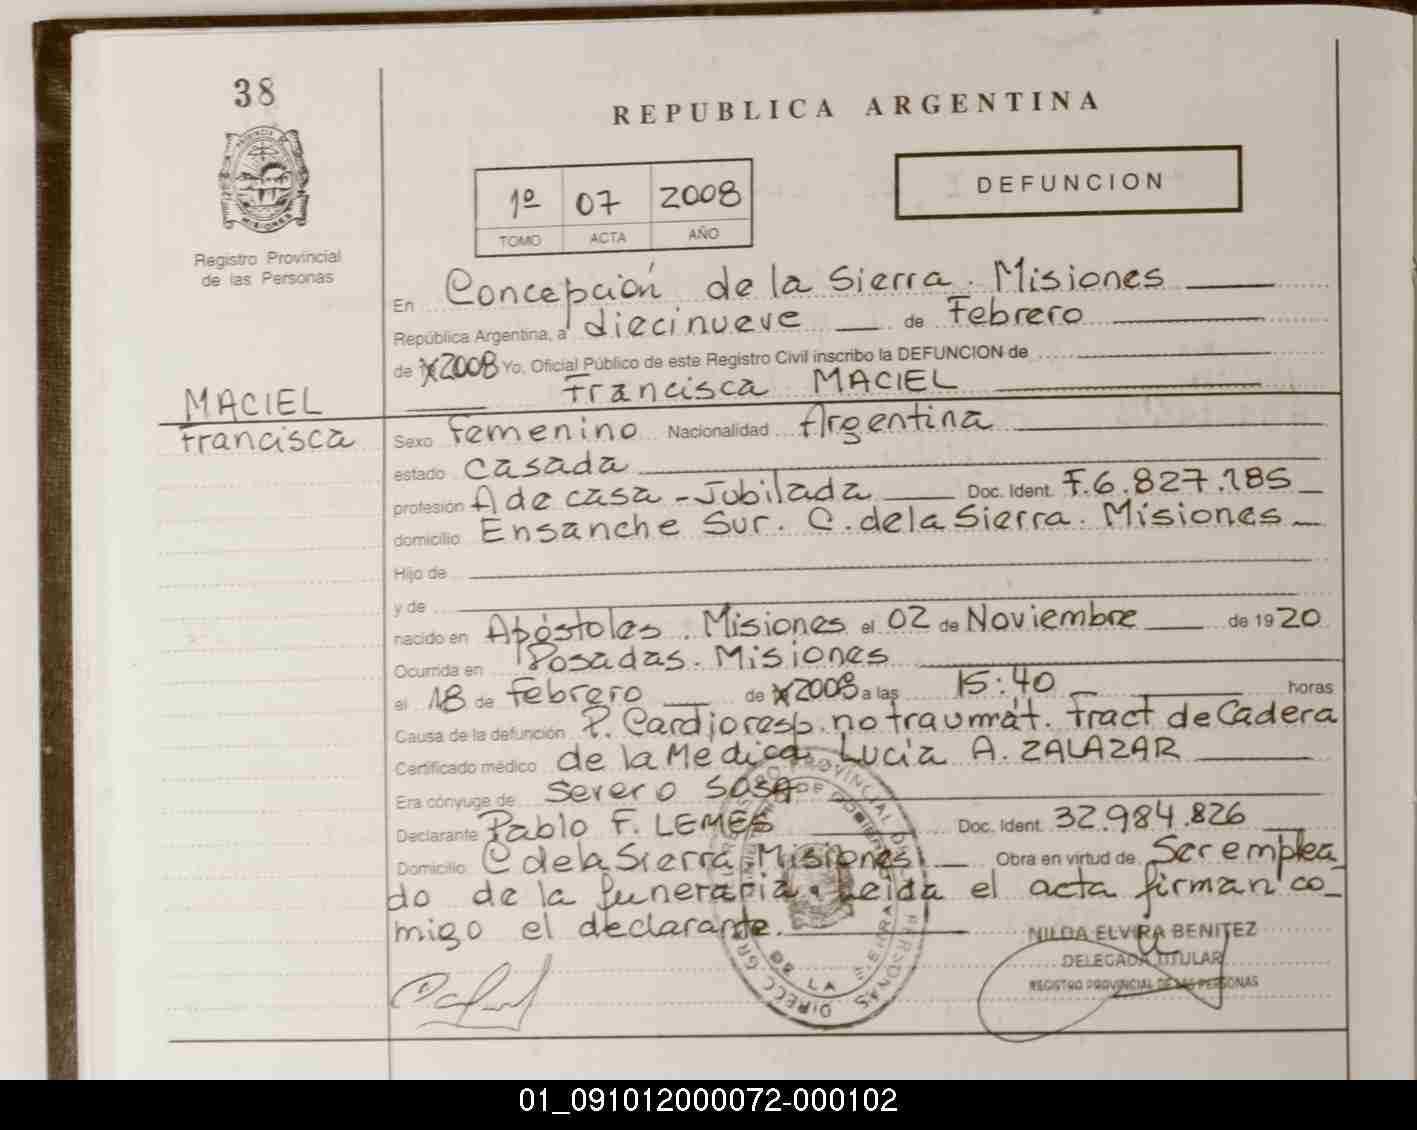 38
REPUBLICA ARGENTINA
PROVINCIA
MISIONES
Registro Provincial
de las Personas
1º 07 2008
TOMO ACTA AÑO
DEFUNCION
En Concepción de la Sierra. Misiones
República Argentina, a diecinueve de Febrero
de 2008 Yo, Oficial Público de este Registro Civil inscribo la DEFUNCION de
Francisca MACIEL
MACIEL
Francisca
Sexo Femenino Nacionalidad Argentina
estado Casada
profesión A de casa - Jubilada Doc. Ident. F.6.827.185
domicilio Ensanche Sur. C. de la Sierra. Misiones
Hijo de
y de
nacido en Apóstoles. Misiones el 02 de Noviembre de 1920
Ocurrida en Posadas. Misiones
el 18 de Febrero de 2008 a las 15:40 horas
Causa de la defunción P. Cardioresp. no traumát. Fract de Cadera
Certificado médico de la Medica Lucía A. ZALAZAR
Era cónyuge de Severo Sosa
Declarante Pablo F. LEMES Doc. Ident. 32.984.826
Domicilio C de la Sierra Misiones Obra en virtud de Ser emplea
do de la funeraria. Leida el acta firman co-
migo el declarante.
NILDA ELVIRA BENITEZ
DELEGADA TITULAR
REGISTRO PROVINCIAL DE LAS PERSONAS
01_091012000072-000102